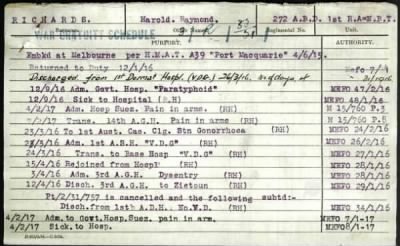 RICHARDS. Harold. Raymond. 272 A.B.D. 1st R.A.N.B.T.
WAR GRATUITY SCHEDULE
PURPORT.
Embkd at Melbourne per H.M.A.T. A39 "Port Macquarie" 4/6/15.
Returned to Duty 12/3/16 MEFO 7/
Discharged from 1st Dermal Hosp. (V.D.G.) 26/3/16.
12/9/16 Adm. Govt. Hosp. "Paratyphoid" MEFO 47/2/16
12/9/16 Sick to Hospital (RH) MEFO 48/1/16
4/2/17 Adm. Hosp Suez. Pain in arms. (RH) M 15/760 P.3
Trans. 14th A.G.H. Pain in arms (RH) M 15/760 P.8
23/3/16 To 1st Aust. Cas. Clg. Stn Gonorrhosa (RH) MEFO 24/2/16
23/3/16 Adm. 1st A.S.H. "V.D.G" (RH) MEFO 26/2/16
24/3/16 Trans. to Base Hosp "V.D.G" (RH) MEFO 27/1/16
15/4/16 Rejoined from Hospl (RH) MEFO 28/1/16
3/4/16 Adm. 3rd A.G.H. Dysentry (RH) MEFO 28/1/16
12/4/16 Disch. 3rd A.G.H. to Zietoun (RH) MEFO 28/1/16
Pt/2/31/757 is cancelled and the following subtd:-
Disch.from 1st A.D.H. No.V.D. (RH) MEFO 34/1/16
4/2/17 Adm.to Govt.Hosp.Suez. pain in arm. MEFO 7/1-17
4/2/17 Sick.to Hosp. MEFO 8/1-17